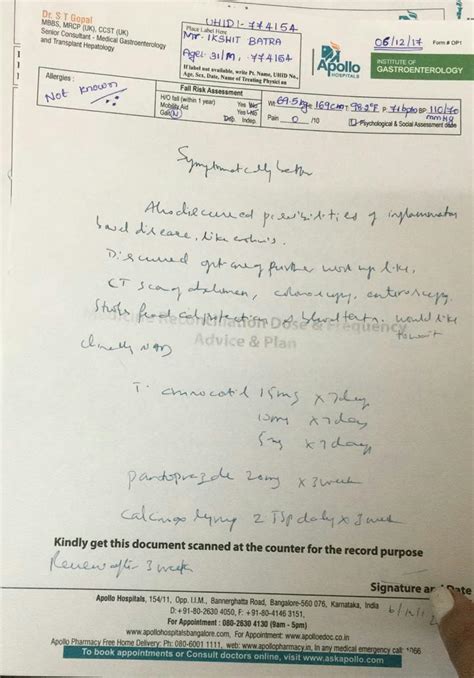 Dr. S T Gopal
MBBS, MRCP (UK), CCST (UK)
Senior Consultant - Medical Gastroenterology
and Transplant Hepatology
UHID:- 774154
Place Label Here
Mr. IKSHIT BATRA
Age:- 31/M, 774154
If label not available, write Pt. Name, UHID No.,
Age, Sex, Date, Name of Treating Physician
Apollo
HOSPITALS
06/12/17
Form # OP1
INSTITUTE OF
GASTROENTEROLOGY
Allergies :
Not known
Fall Risk Assessment
H/O fall (within 1 year) Yes No
Mobility Aid Yes No
Gait (N) Dep. Indep.
Wt 69.5kg 169cm T 98.2°F P 71bpm BP 110/70 mmHg
Pain 0 /10
Psychological & Social Assessment done
Symptomatically better
Also discussed possibilities of inflammatory
bowel disease, like crohn's.
Discussed option of further work up like,
CT scan of abdomen, colonoscopy, enteroscopy.
Stool for calprotectin & blood tests. would like
to wait
Medicine Reconciliation Dose & Frequency
Advice & Plan
clinically NAD
T. 15mg x 7day
10mg x 7day
5mg x 7days
pantoprazole 20mg x 3week
2 TSP daily x 3 week
Kindly get this document scanned at the counter for the record purpose
Review after 3 week
Signature and Date
6/12/1
Apollo Hospitals, 154/11, Opp. I.I.M., Bannerghatta Road, Bangalore-560 076, Karnataka, India
D: +91-80-2630 4050, F: +91-80-4146 3151
For Appointment : 080-2630 4130 (9am - 5pm)
www.apollohospitalsbangalore.com, For Appointment: www.apolloedoc.co.in
Apollo Pharmacy Free Home Delivery: Ph: 080-6001 1111, web: www.apollopharmacy.in, In any medical emergency call: 1066
To book appointments or Consult doctors online, visit www.askapollo.com